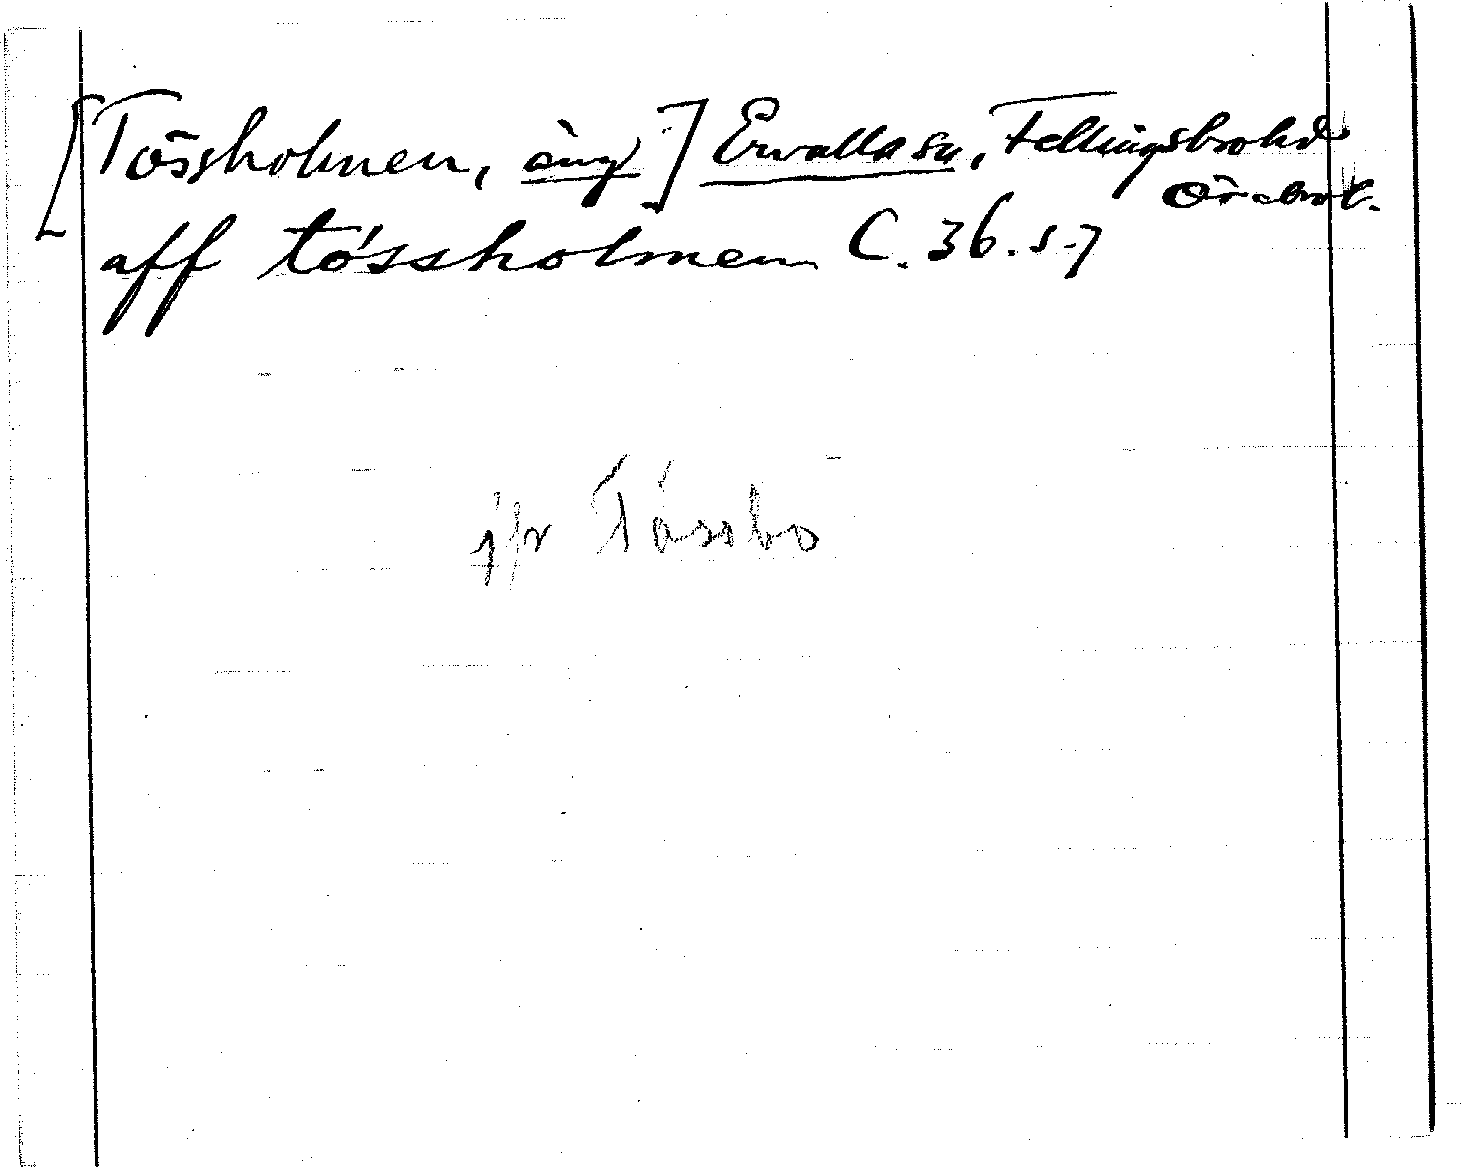 [Tössholmen, äng] Ervalla sn, Fellingsbro hd
Örebro l.
aff tóssholmen C. 36. s. 7
jfr Tássbo